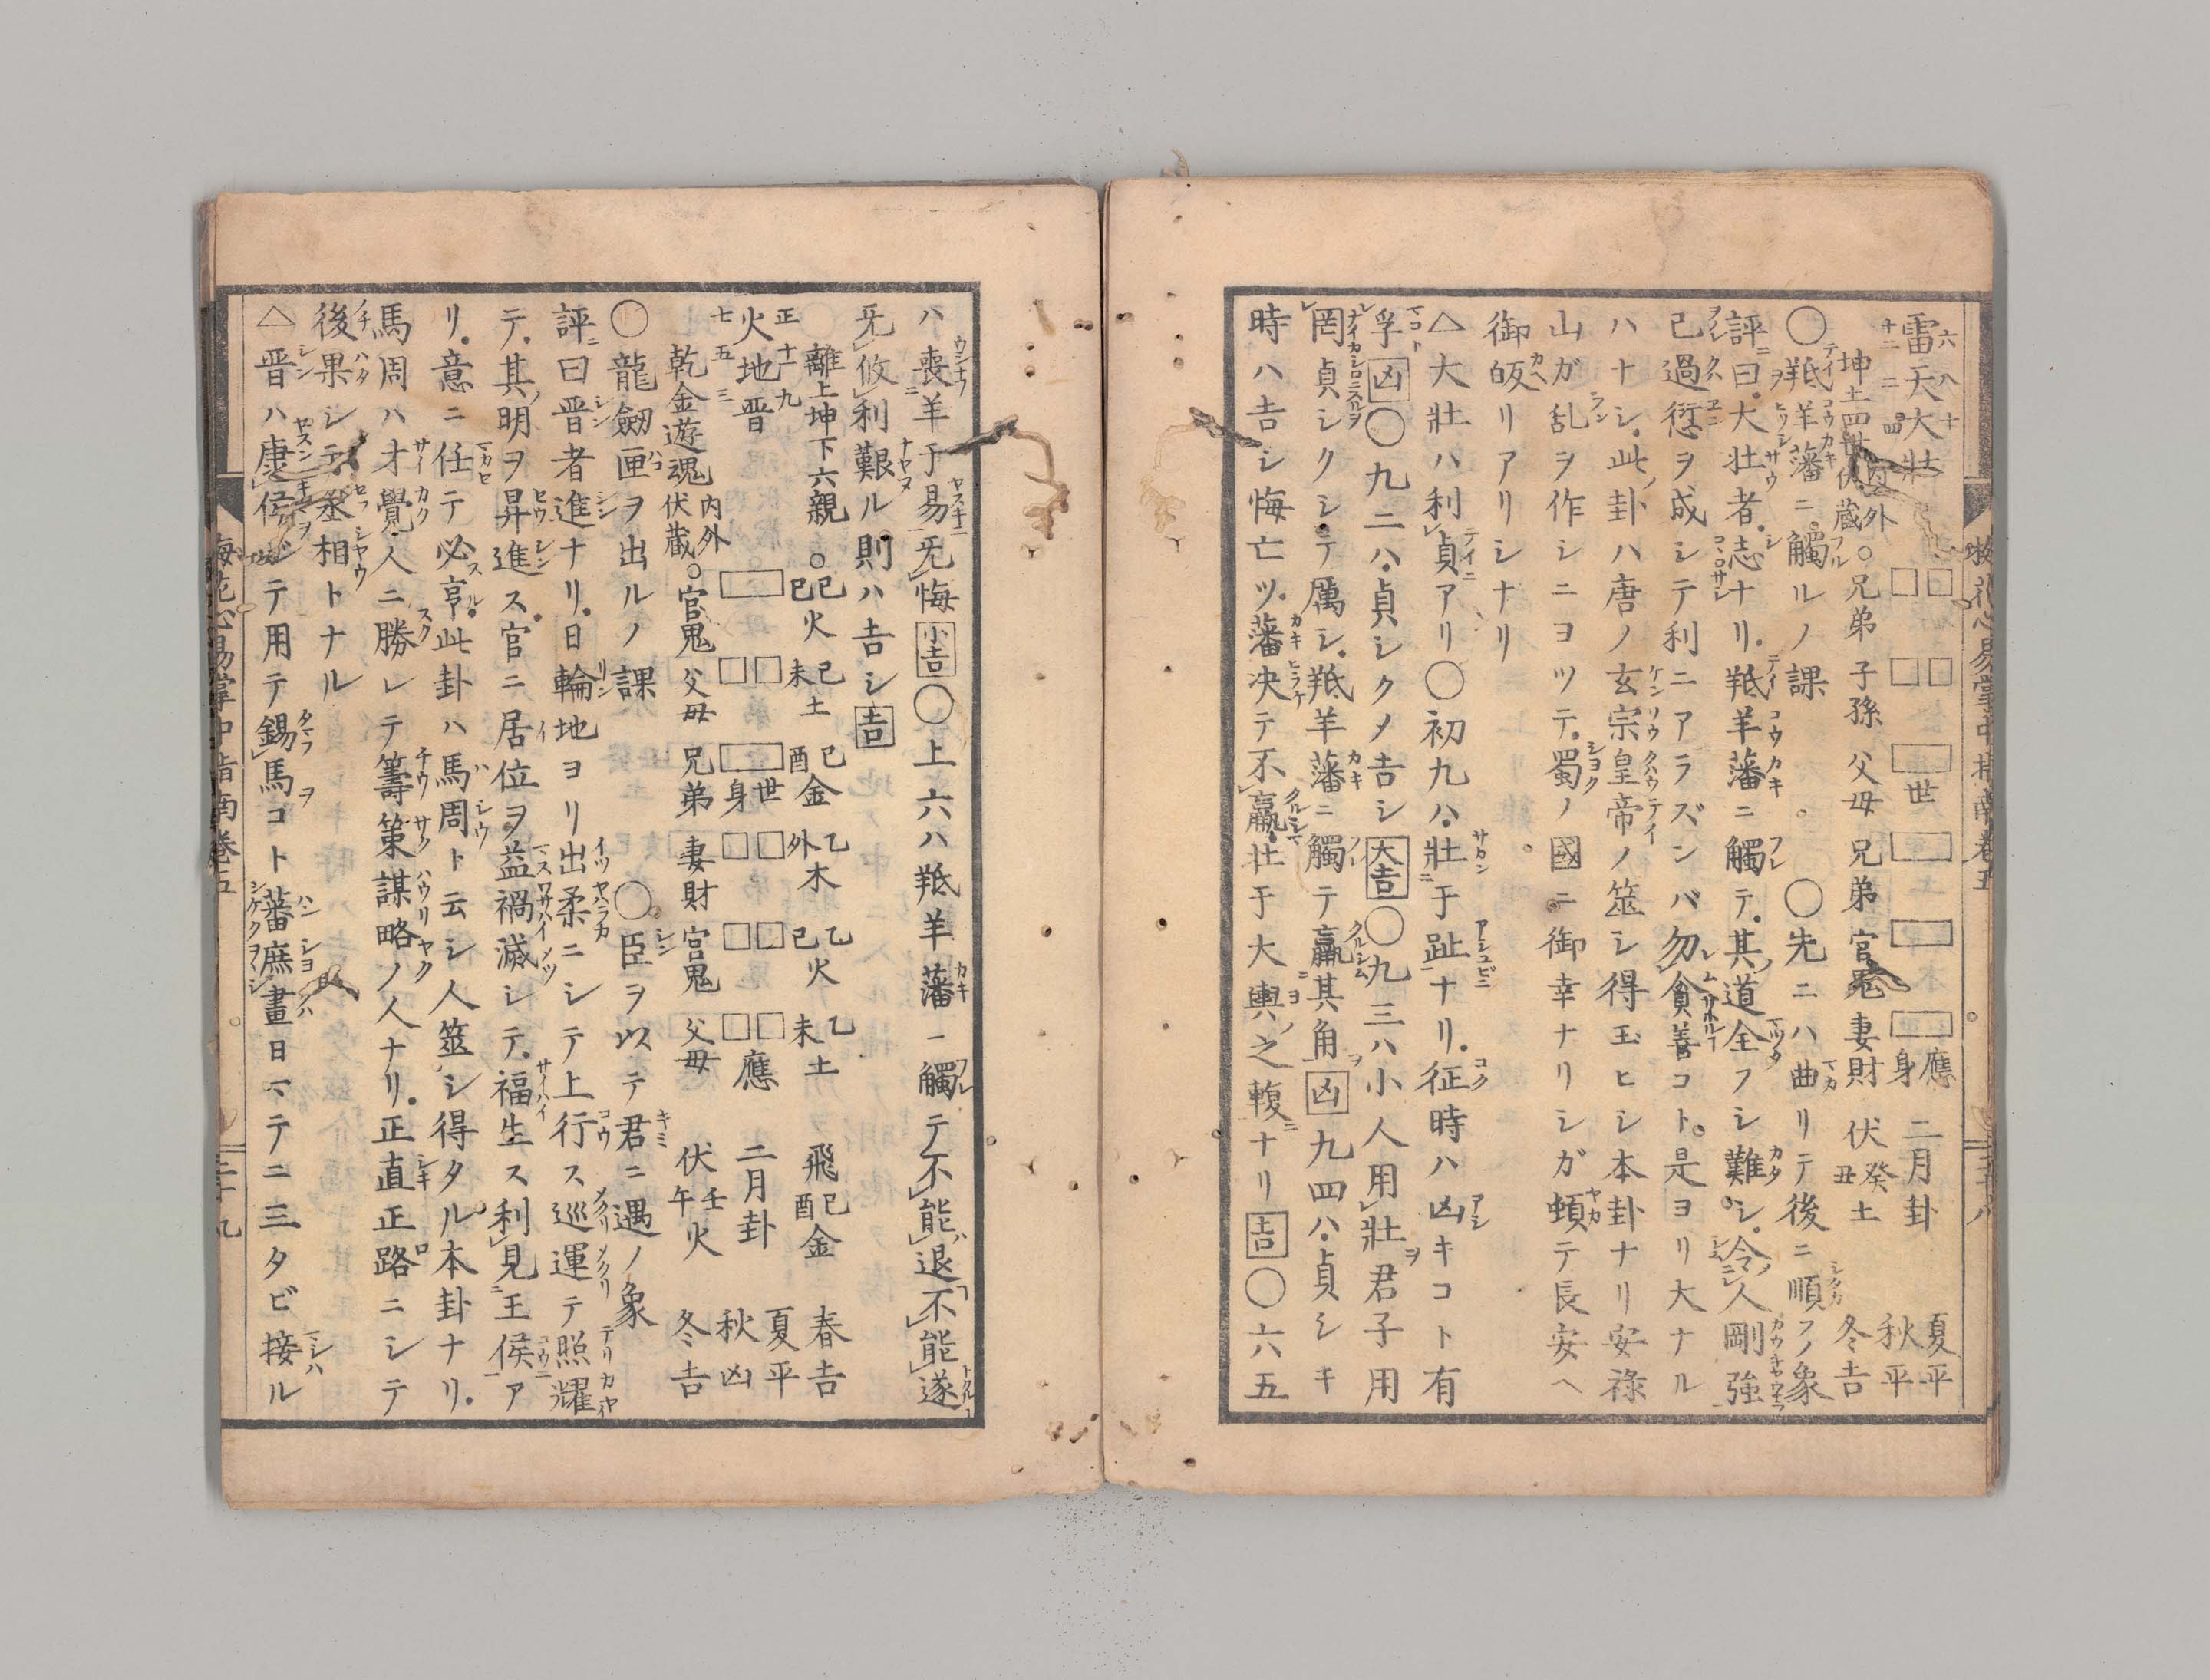 雷天大壮
坤土四世 内外 伏蔵○兄弟 子孫 父母 兄弟 官鬼 妻財 伏 癸丑土 冬吉
世 應 身 二月卦 夏平 秋平
○羝羊藩ニ觸ルノ課 ○先ニハ曲リテ後ニ順フノ象
評曰大壮者志ナリ羝羊藩ニ觸テ其道全フシ難シ令人剛強
己過愆ヲ成シテ利ニアラズンバ勿貪善コト是ヨリ大ナル
ハナシ此卦ハ唐ノ玄宗皇帝ノ筮シ得玉ヒシ本卦ナリ安祿
山ガ乱ヲ作シニヨツテ蜀ノ國ニ御幸ナリシガ頓テ長安ヘ
御皈リアリシナリ
△大壮ハ利貞アリ○初九ハ壮于趾ナリ征時ハ凶キコト有
孚凶○九二ハ貞シクメ吉シ大吉○九三ハ小人用壮君子用
罔貞シクシテ厲シ羝羊藩ニ觸テ羸其角凶九四ハ貞シキ
時ハ吉シ悔亡ツ藩决テ不羸壮于大輿之輹ナリ吉○六五
ハ喪羊于易无悔小吉○上六ハ羝羊藩ニ觸テ不能退不能遂
无攸利艱ル則ハ吉シ吉
離上坤下六親○己巳火 己未土 己酉金 乙外木 乙巳火 乙未土 飛 己酉金 春吉
火地晋 正十九 七五三
世 身 應 二月卦 夏平 秋凶
乾金遊魂 内外 伏蔵○官鬼 父母 兄弟 妻財 官鬼 父母 伏 壬午火 冬吉
○龍劔匣ヲ出ルノ課 ○臣ヲ以テ君ニ遇ノ象
評曰晋者進ナリ日輪地ヨリ出柔ニシテ上行ス巡運テ照耀
テ其明ヲ昇進ス官ニ居位ヲ益禍滅シテ福生ス利見王侯ア
リ意ニ任テ必亨此卦ハ馬周ト云シ人筮シ得タル本卦ナリ
馬周ハ才覺人ニ勝レテ籌策謀略ノ人ナリ正直正路ニシテ
後果シテ丞相トナル
△晋ハ康侯シテ用テ錫馬コト蕃庶晝日マテニ三タビ接ル
梅花心易掌中指南巻五 二十九